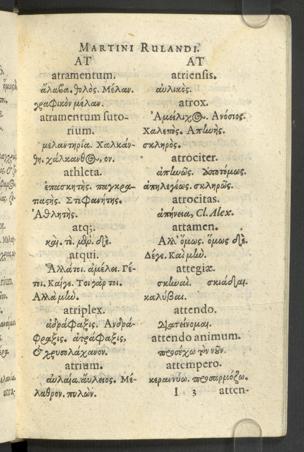 MARTINI RULANDI.
AT
atramentum.
ἄλαβα. θολός. Μέλαν.
γραφικὸν μέλαν.
atramentum suto-
rium.
μελαντηρία. Χαλκάν-
θη. χάλκανθος, ον.
athleta.
παγκρα-
Ἀθλητής.
atq;.
καὶ. τὲ.
atqui.
Ἀλλά τοι. ἀμέλει. Γέ-
τοι. Καί γε. Τοιγάρ τοι.
Ἀλλὰ μὴν.
atriplex.
ἀδράφαξις. Ἀνδρά-
φαξις. ἀτράφαξις,
χρυσολάχανον.
atrium.
αὐλαία. αὔλειος. Μέ-
λαθρον. πυλών.
AT
atriensis.
αὐλικός.
atrox.
Ἀμείλιχος. Ἀνόσιος.
Χαλεπός. Ἀπηνής.
σκληρός.
atrociter.
ἀπηνῶς. ἀποτόμως.
ἀπηλεγέως. σκληρῶς.
atrocitas.
ἀπήνεια, Cl. Alex.
attamen.
Ἀλλ' ὅμως. ὅμως δὲ.
Δέγε. Καὶ μὴν.
attegiæ.
σκηναὶ. σκιάδια.
καλύβαι.
attendo.
Διατείνομαι.
attendo animum.
προσέχω τὸν νοῦν.
attempero.
κεραννύω. προσαρμόζω.
I 3 atten-